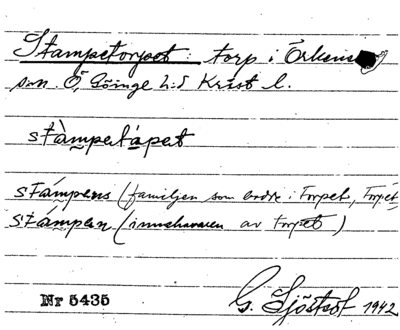 Stampetorpet: torp i Örkens
sn. Ö, Göinge h:d Krist l.
stàmpetåpet
stámpens (familjen som bodde i torpet, torpet
stámpen (innehavaren av torpet)
Nr 5435 G. Sjöstrof 1942